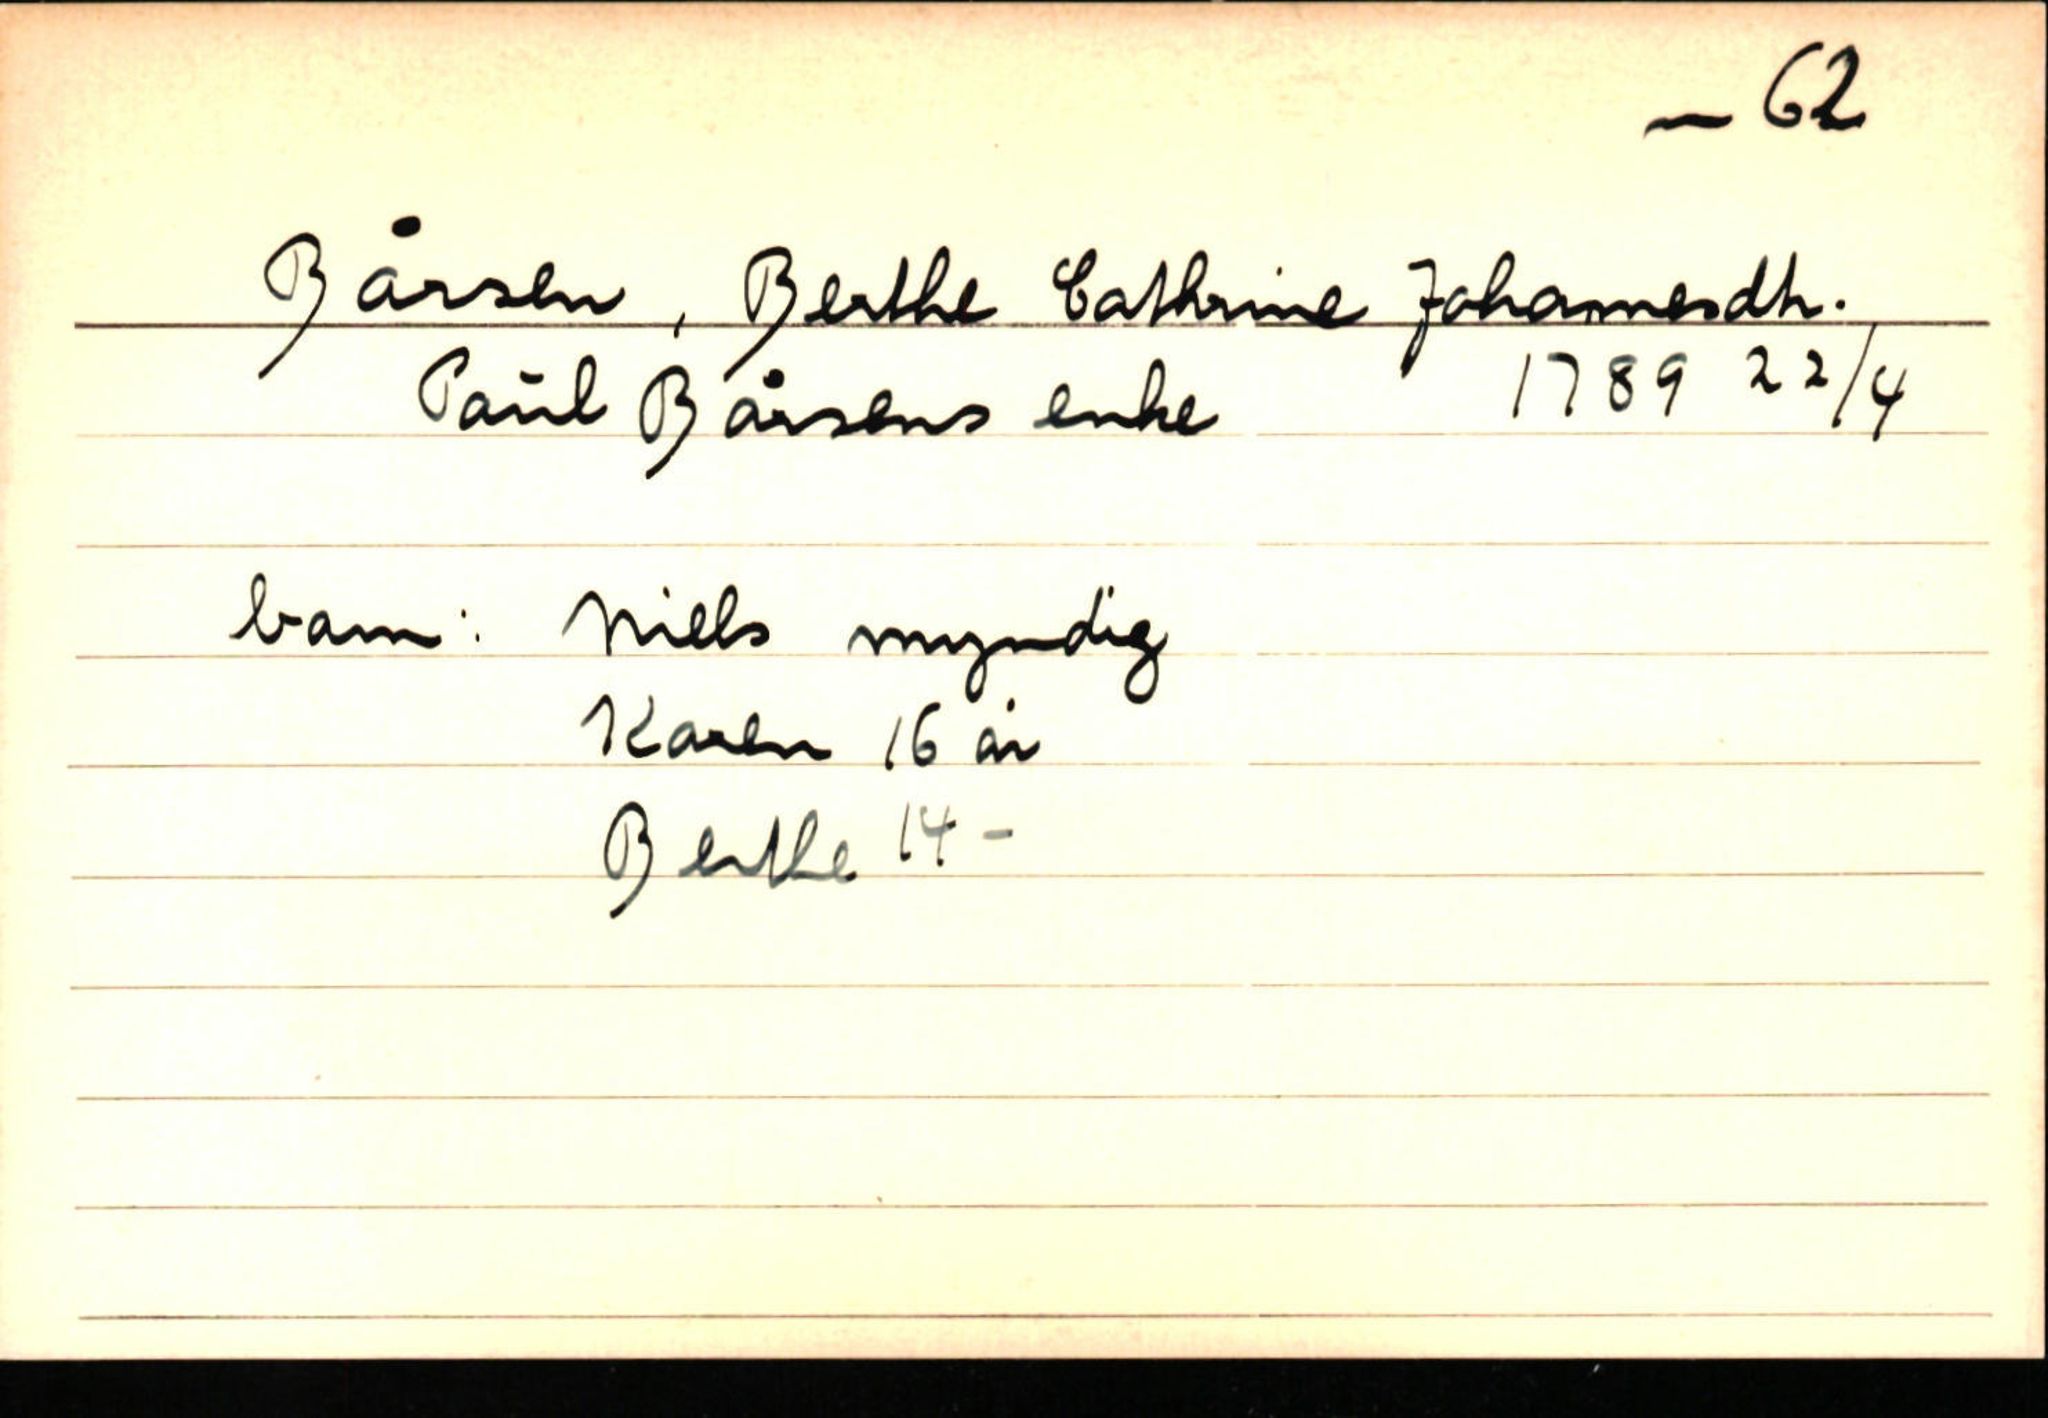 — 62
Bårsen, Berthe Cathrine Johannesdtr.
Paul Bårsens enke 1789 22/4
barn: Niels myndig
Karen 16 år
Berthe 14 -